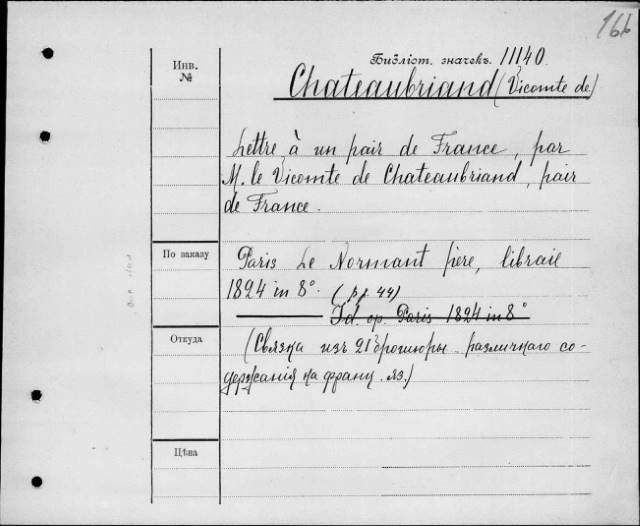 166
Инв. №
Библіот. значекъ. 11140.
Chateaubriand (Vicomte de)
Lettre à un pair de France, par
M. le Vicomte de Chateaubriand, pair
de France.
По заказу
Paris Le Normant père, libraie
1824 in 8°. (pp. 44)
Id. op. Paris 1824 in 8°
Откуда
(Связка изъ 21 брошюры различнаго со-
держанія на франц. яз.)
Цѣна